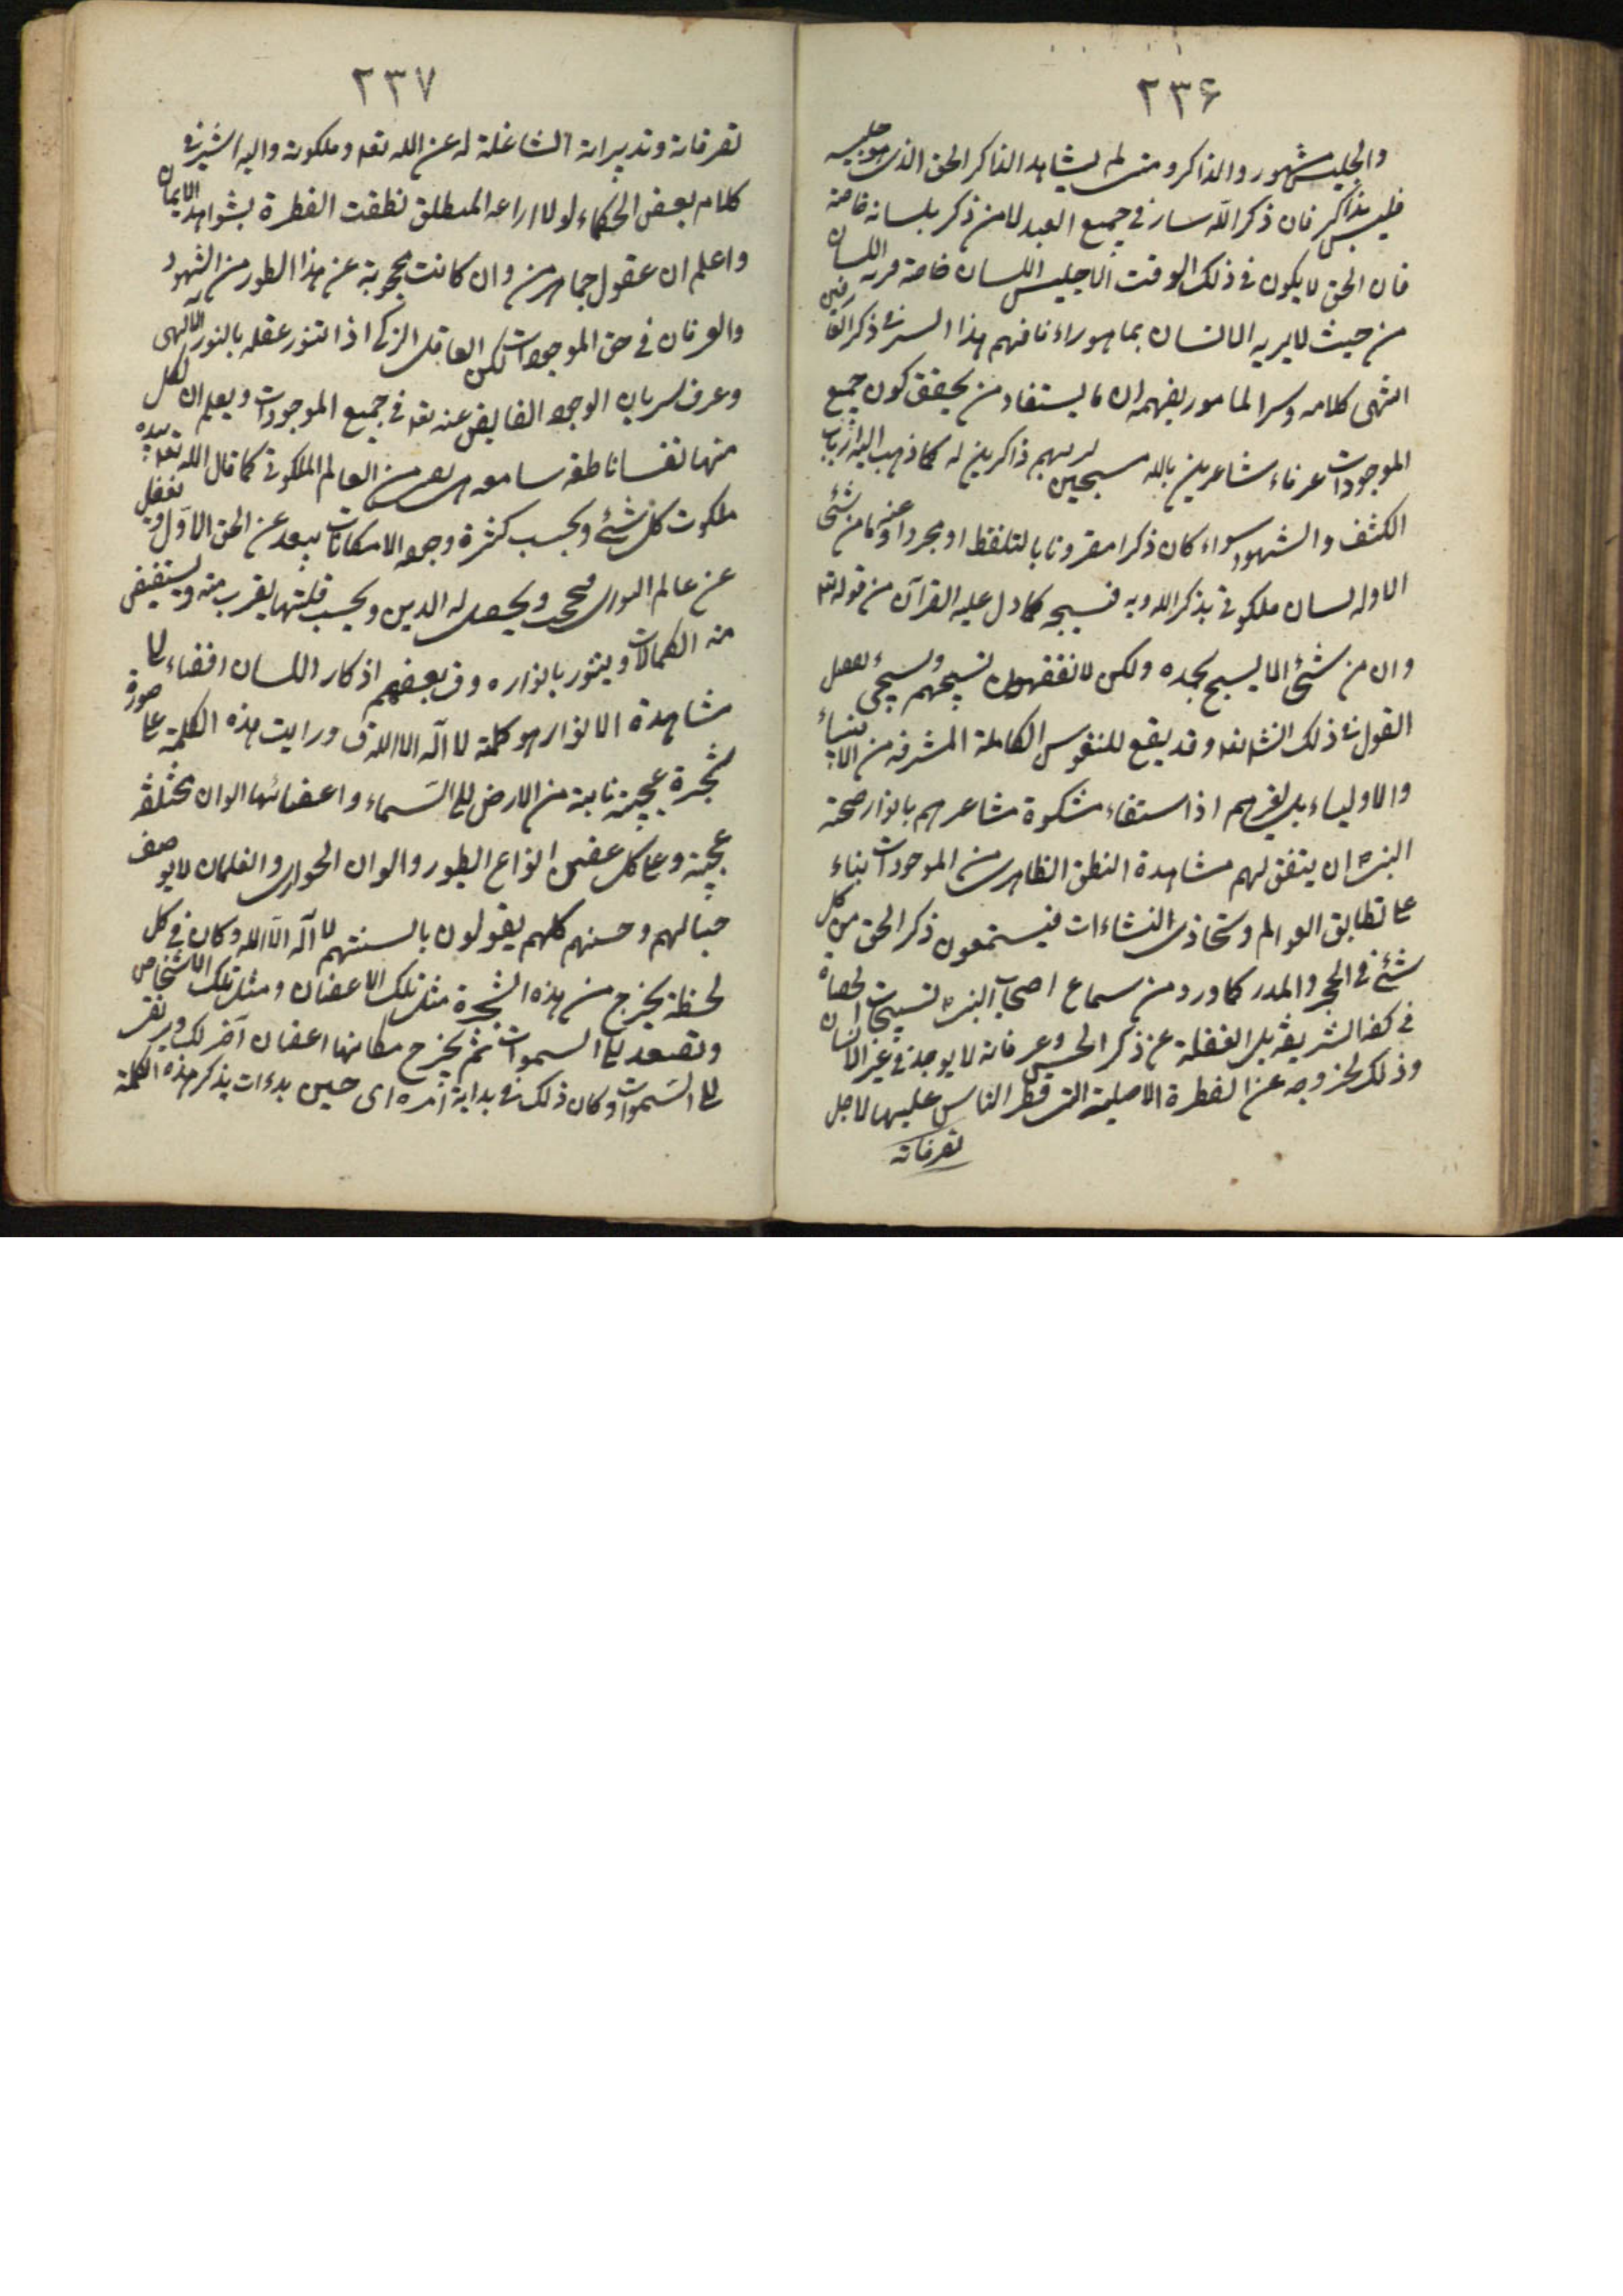 ٢٣۶
والجليس مشهور والذاكر ومتى لم يشاهد الذاكر الحق الذى هو جليسه
فليس بذاكر فان ذكر الله سار فى جميع العبد لا من ذكر بلسانه خاصة
فان الحق لا يكون فى ذلك الوقت الا جليس اللسان خاصة فيراه اللسان
من حيث لا يريه الانسان بما هو راء فافهم هذا السر فى ذكر الغافلين
انتهى كلامه وسر المامور بفهمه ان ما يستفاد من تحقق كون جميع
الموجودات عرفاء شاعرين بالله مسبحين لربهم ذاكرين له كما ذهب اليه ارباب
الكشف والشهود سواء كان ذكرا مقرونا بالتلفظ او مجردا عنه وما من شئ
الا وله لسان ملكوتى يذكر الله وبه فسبحه كما دل عليه القرآن من قوله تع
وان من شئ الا يسبح بحمده ولكن لا تفقهون تسبيحهم وسيجئ تفصل
القول فى ذلك انشاءالله وقد يقع للنفوس الكاملة المشرفه من الانبياء
والاولياء بل لغيرهم اذا استضاء مشكوة مشاعرهم بانوار صحة
النبى ان يتفق لهم مشاهدة النطق الظاهر من الموجودات بناء
على تطابق العوالم وتحاذى النشاءات فيستمعون ذكر الحق من كل
شئ فى الحجر والمدر كما ورد من سماع اصحاب النبى تسبيحات الحصاة
فى كفه الشريفة بل الغفلة عن ذكر الحس وعرفانه لا يوجد فى غير الانسان
وذلك لخروجه عن الفطرة الاصلية التى فطر الناس عليها لاجل
تصرفاته
٢٣٧
تصرفاته وتدبيراته الشاغلة له عن الله تعه وملكوته واليه اشير فى
كلام بعض الحكماء لولا اراعه المطلق نطقت الفطرة بشواهد الايمان
واعلم ان عقول جماهر من وان كانت محجوبة عن هذا الطور من الشهود
والعرفان فى حق الموجودات لكن العاقل الزكى اذا تنور عقله بالنور الالهى
وعرف سريان الوجود الفايض عنه تعه فى جميع الموجودات ويعلم ان لكل
منها نفسا ناطقه سامعه من العالم الملكوتى كما قال الله تعه بيده
ملكوت كل شئ وبحسب كثرة وجوه الامكانات يبعد عن الحق الاول ويغفل
عن عالم ويحصل له الدين وبحسب قلتها يقرب منه ويستفيض
منه الكمالات ويتنور بانواره وق بعضهم اذكار اللسان افضاء لى
مشاهدة الانوار هو كلمة لا اله الا الله ق ورايت هذه الكلمة على صورة
شجرة عجيبة نابتة من الارض الى السماء واغصانها الوان مختلفه
عجيبة وعلى كل غصن انواع الطيور والوان الحوارى والغلمان لا يوصف
جمالهم وحسنهم كلهم يقولون بالسنتهم لا اله الا الله وكان فى كل
لحظة يخرج من هذه الشجرة مثل تلك الاغصان ومثل تلك الاشخاص
وتصعد الى السموات ثم يخرج مكانها اغصان آخر لك ويرتقى
الى السموات وكان ذلك فى بداية امره اى حين بدءات بذكر هذه الكلمة